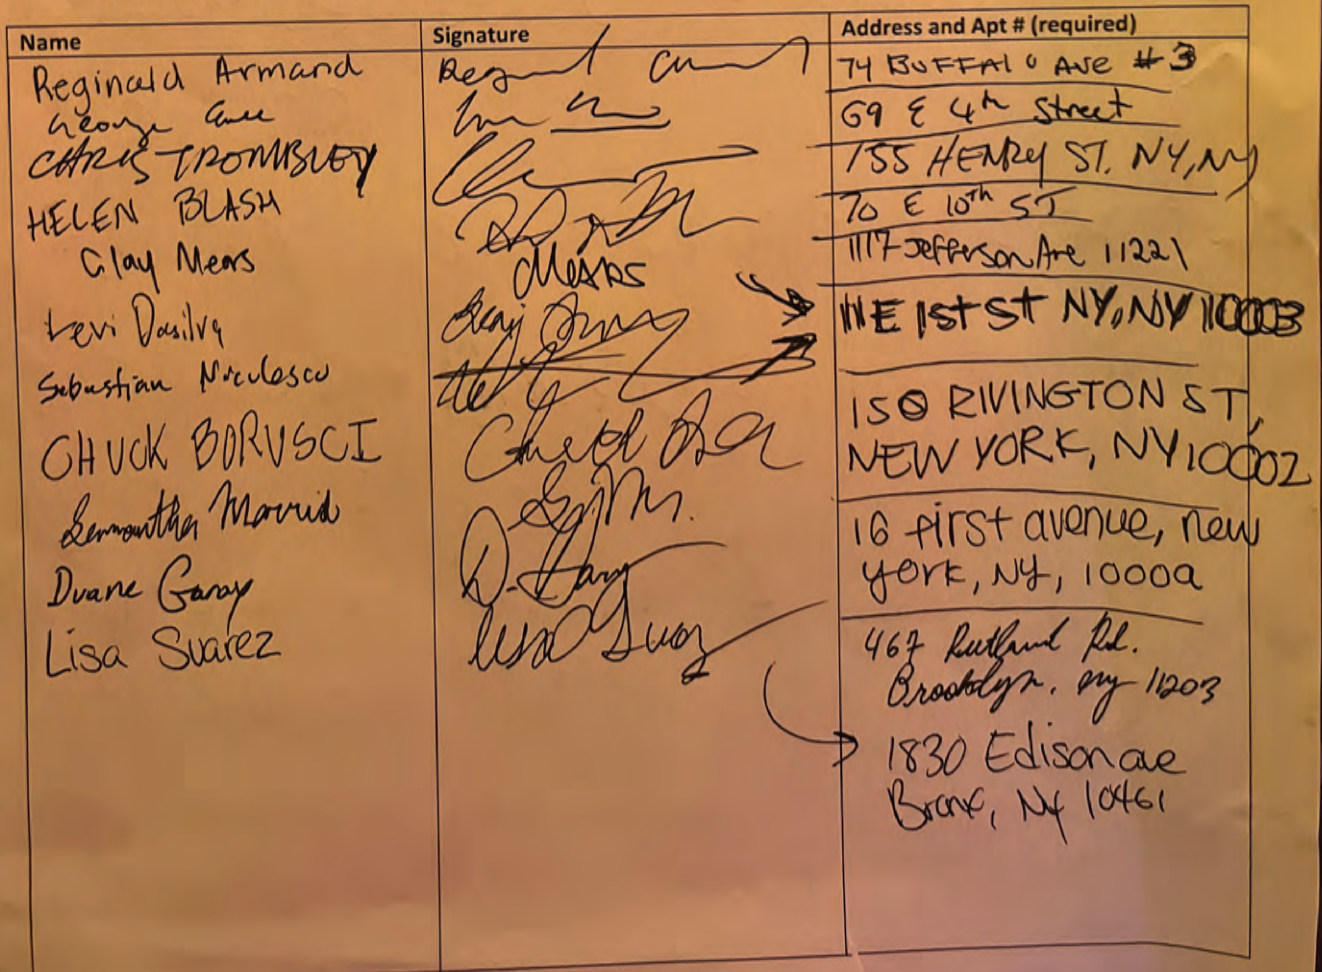 Name Signature Address and Apt # (required)
Reginald Armand 74 BUFFALO AVE #3
George 69 E 4th Street
CHRIS TROMBLEY 155 HENRY ST. NY, NY
HELEN BLASH 70 E 10th ST
Clay Mears CMears 1117 Jefferson Ave 11221
Levi Dasilva 11 E 1st St NY, NY 10003
Sebastian Niculescu
150 RIVINGTON ST,
CHUCK BORUSCI NEW YORK, NY 10002
Samantha Morris 16 first avenue, new
york, NY, 10009
Duane Garay D. Garay
Lisa Suarez Lisa Suarez 467 Rutland Rd.
Brooklyn, NY 11203
1830 Edison ave
Bronx, NY 10461